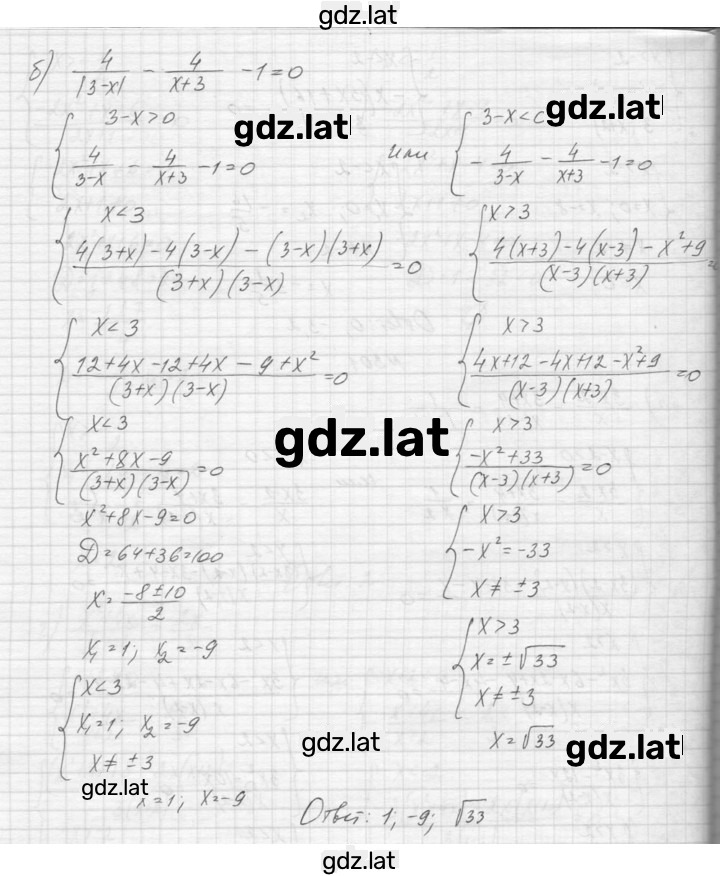 gdz.lat
б) 4/|3-x| - 4/(x+3) - 1 = 0
{ 3-x>0
4/(3-x) - 4/(x+3) - 1 = 0
gdz.lat
или
{ 3-x<0
-4/(3-x) - 4/(x+3) - 1 = 0
gdz.lat
{ x<3
(4(3+x)-4(3-x)-(3-x)(3+x))/((3+x)(3-x)) = 0
{ x>3
(4(x+3)-4(x-3)-x²+9)/((x-3)(x+3)) =
{ x<3
(12+4x-12+4x-9+x²)/((3+x)(3-x)) = 0
{ x>3
(4x+12-4x+12-x²+9)/((x-3)(x+3)) = 0
{ x<3
(x²+8x-9)/((3+x)(3-x)) = 0
gdz.lat
{ x>3
(-x²+33)/((x-3)(x+3)) = 0
x²+8x-9=0
D=64+36=100
x = (-8±10)/2
x₁=1; x₂=-9
{ x<3
x₁=1; x₂=-9
x≠±3
gdz.lat
x=1; x=-9
{ x>3
-x²=-33
x≠±3
{ x>3
x=±√33
x≠±3
gdz.lat
x=√33
gdz.lat
Ответ: 1; -9; √33
gdz.lat